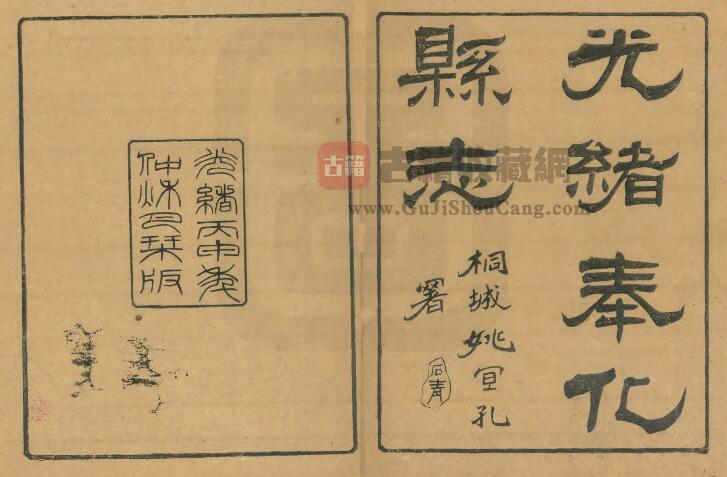 光緒奉化
縣志
桐城姚宣孔
署
光緒丙申季
仲秌月栞版
古籍
古籍收藏網
www.GuJiShouCang.com